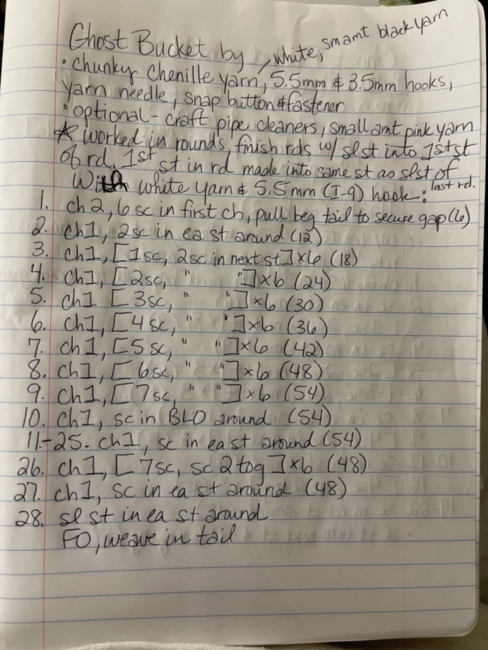 Ghost Bucket by / white, sm amt black yarn
• chunky chenille yarn, 5.5mm & 3.5mm hooks,
yarn needle, snap button & fastener
• optional - craft pipe cleaners, small amt pink yarn
* worked in rounds, finish rds w/ sl st into 1st st
of rd, 1st st in rd made into same st as sl st of
last rd.
With white yarn & 5.5mm (I-9) hook:
1. ch 2, 6 sc in first ch, pull beg tail to secure gap (6)
2. ch1, 2sc in ea st around (12)
3. ch1, [1sc, 2sc in next st] x6 (18)
4. ch1, [2sc, " "] x6 (24)
5. ch1, [3sc, " "] x6 (30)
6. ch1, [4sc, " "] x6 (36)
7. ch1, [5sc, " "] x6 (42)
8. ch1, [6sc, " "] x6 (48)
9. ch1, [7sc, " "] x6 (54)
10. ch1, sc in BLO around (54)
11-25. ch1, sc in ea st around (54)
26. ch1, [7sc, sc 2 tog] x6 (48)
27. ch1, sc in ea st around (48)
28. sl st in ea st around
FO, weave in tail